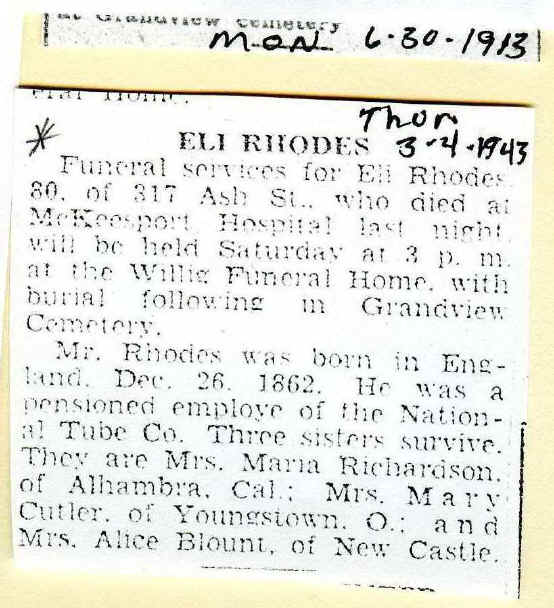 at Grandview Cemetery
MON 6-30-1913
eral Home.
Thur
3-4-1943
*
ELI RHODES
Funeral services for Eli Rhodes,
80, of 317 Ash St., who died at
McKeesport Hospital last night,
will be held Saturday at 3 p. m.
at the Willig Funeral Home, with
burial following in Grandview
Cemetery.
Mr. Rhodes was born in Eng-
land, Dec. 26, 1862. He was a
pensioned employe of the Nation-
al Tube Co. Three sisters survive.
They are Mrs. Maria Richardson,
of Alhambra, Cal.; Mrs. Mary
Cutler, of Youngstown, O.; and
Mrs. Alice Blount, of New Castle.